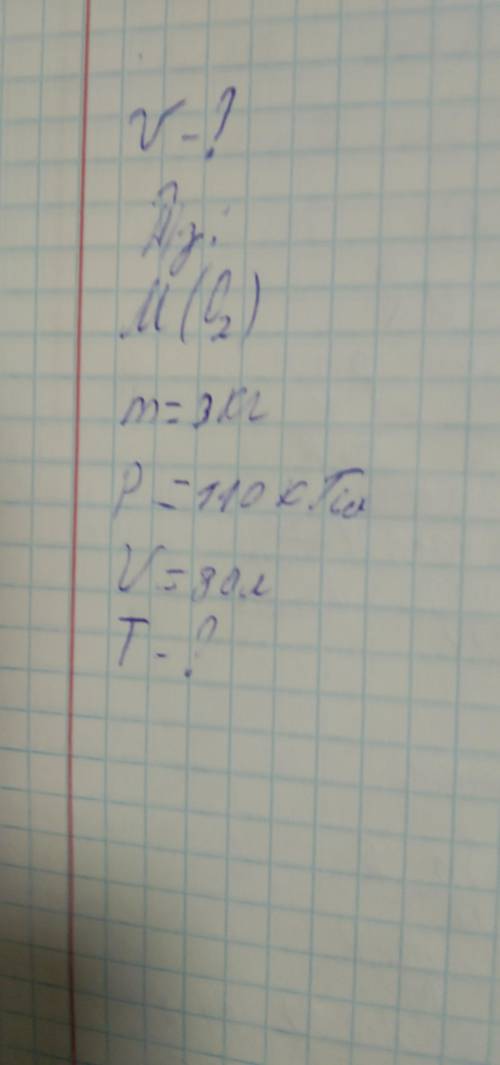 V - ?
M(O₂)
m = 3 кг
P = 110 кПа
V = 80 л
T - ?